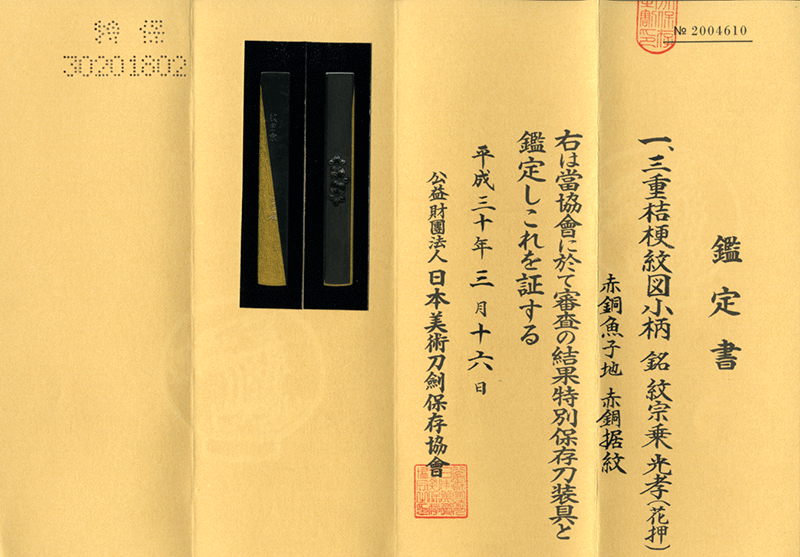 № 2004610
鑑定書
一、三重桔梗紋図小柄 銘 紋宗乗 光孝(花押)
赤銅魚子地 赤銅据紋
右は當協會に於て審査の結果特別保存刀装具と
鑑定しこれを証する
平成三十年三月十六日
公益財團法人 日本美術刀劍保存協會
特保
30201802